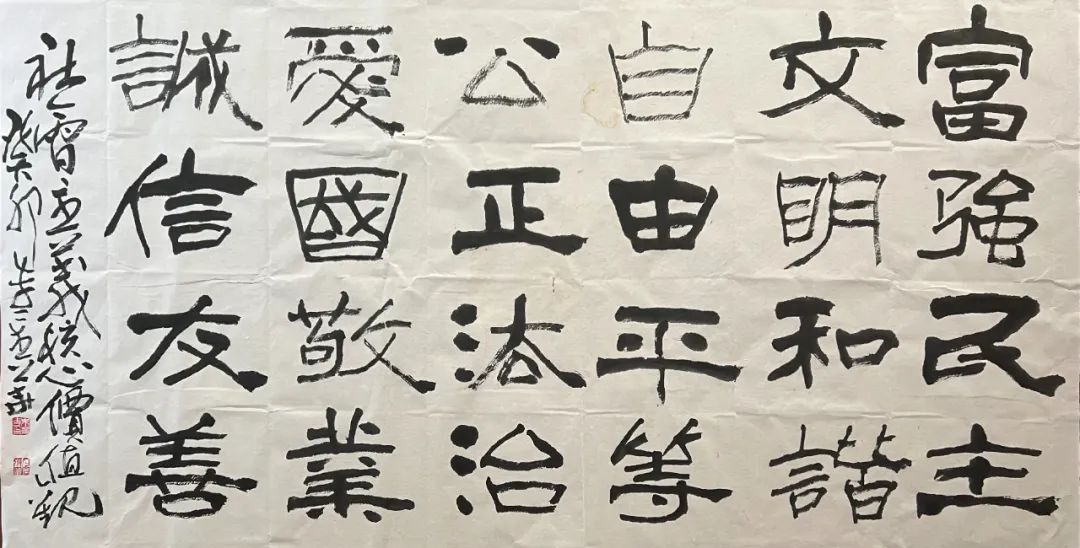 富強民主
文明和諧
自由平等
公正法治
愛國敬業
誠信友善
社會主義核心價值观
癸卯